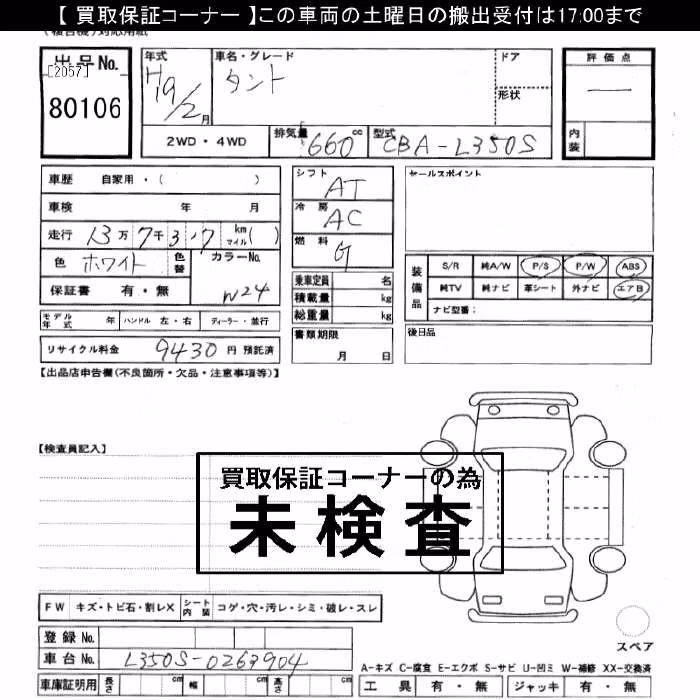 【 買取保証コーナー 】この車両の土曜日の搬出受付は17:00まで
出品No.
[2057]
80106
年式
H19/2月
車名・グレード
タント
ドア
形状
評価点
—
内装
2WD・4WD
排気量 660 cc
型式 CBA-L350S
車歴 自家用・( )
車検 年 月
走行 13万7千3,7 km マイル( )
色 ホワイト
色替
カラーNo.
W24
保証書 有・無
シフト
AT
冷房
AC
燃料
G
乗車定員 名
積載量 kg
総重量 kg
セールスポイント
装備品
S/R 純A/W P/S P/W ABS
純TV 純ナビ 革シート 外ナビ エアB
ナビ型番:
モデル年式 年 ハンドル 左・右 ディーラー・並行
書類期限
月 日
後日品
リサイクル料金 9430 円 預託済
【出品店申告欄(不良箇所・欠品・注意事項等)】
【検査員記入】
買取保証コーナーの為
未検査
FW キズ・トビ石・割レX シート内装 コゲ・穴・汚レ・シミ・破レ・スレ
登録No.
車台No. L350S-0263904
スペア
A-キズ C-腐食 E-エクボ S-サビ U-凹ミ W-補修 XX-交換済
車庫証明用 長さ cm 幅 cm 高さ cm
工具 有・無 ジャッキ 有・無